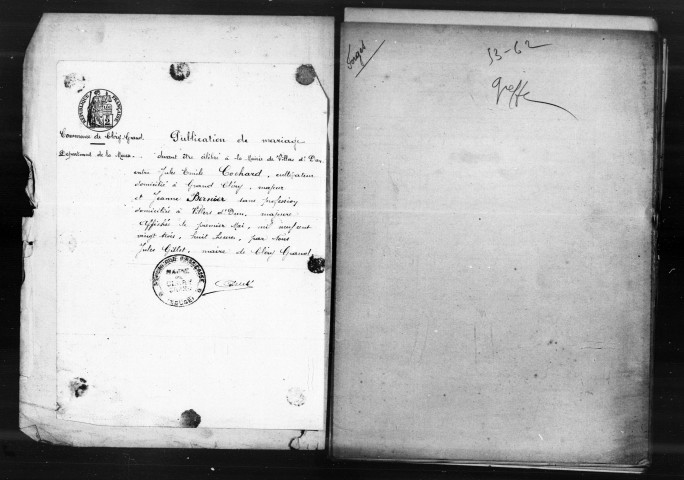 Commune de Cléry-Grand
Département de la Meuse
Publication de mariage
devant être célébré à la Mairie de Villers d' Dun,
entre Jules Emile Cochard, cultivateur
domicilié à Grand Cléry, majeur
et Jeanne Bernier sans profession
domiciliée à Villers d' Dun, majeure
Affichée le premier Mai, mil neuf cent
vingt trois, huit heures, par nous
Jules, maire de Cléry Grand
RÉPUBLIQUE FRANÇAISE
MAIRIE
(MEUSE)
53-62
Greffe